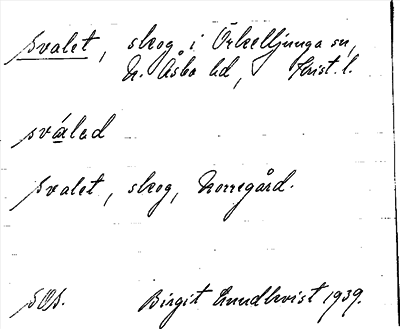 Svalet, skog i Örkelljunga sn,
N. Åsbo hd, Krist. l.
sválad
Svalet, skog, Norregård.
SOS. Birgit Lundkvist 1939.